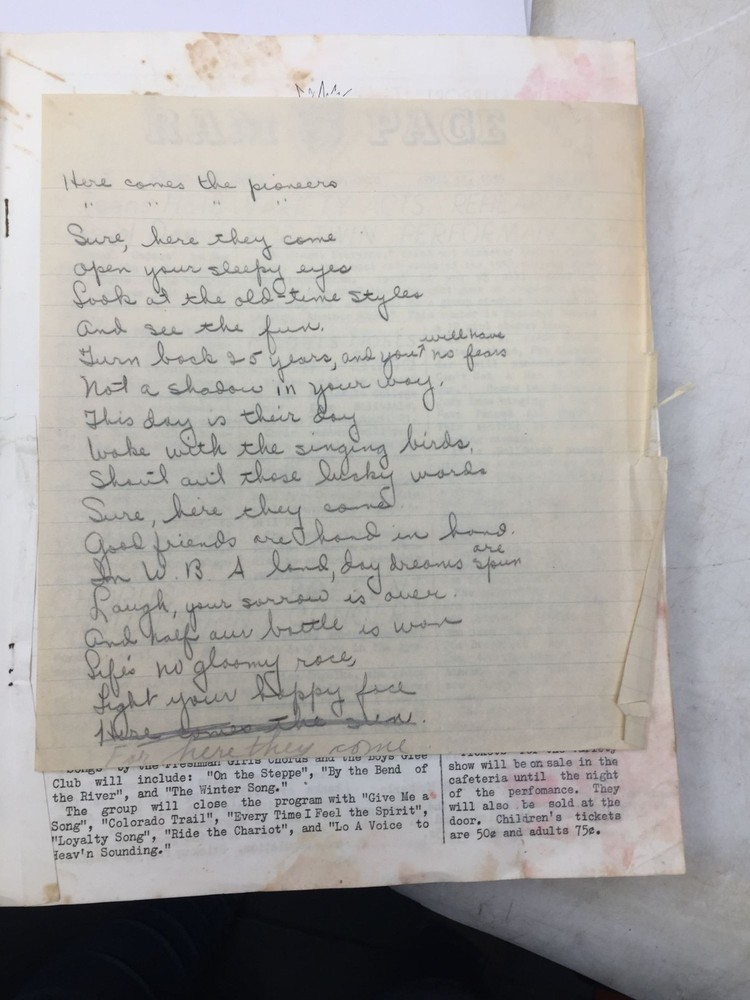 RAM PAGE
Here comes the pioneers
" " " "
Sure, here they come
open your sleepy eyes
Look at the old-time styles
And see the fun.
Turn back 25 years, and you will have no fears
Not a shadow in your way.
This day is their day
Wake with the singing birds,
Shout out those lusky words
Sure, here they come
Good friends are hand in hand.
In W. B. A land, day dreams are spun
Laugh, your sorrow is over.
And half our battle is won
Life's no gloomy race,
Light your happy face
Here comes the sun.
For here they come
Songs by the Freshman Girls Chorus and the Boys Glee
Club will include: "On the Steppe", "By the Bend of
the River", and "The Winter Song."
The group will close the program with "Give Me a
Song", "Colorado Trail", "Every Time I Feel the Spirit",
"Loyalty Song", "Ride the Chariot", and "Lo A Voice to
Heav'n Sounding."
Tickets for the variety
show will be on sale in the
cafeteria until the night
of the perfomance. They
will also be sold at the
door. Children's tickets
are 50¢ and adults 75¢.